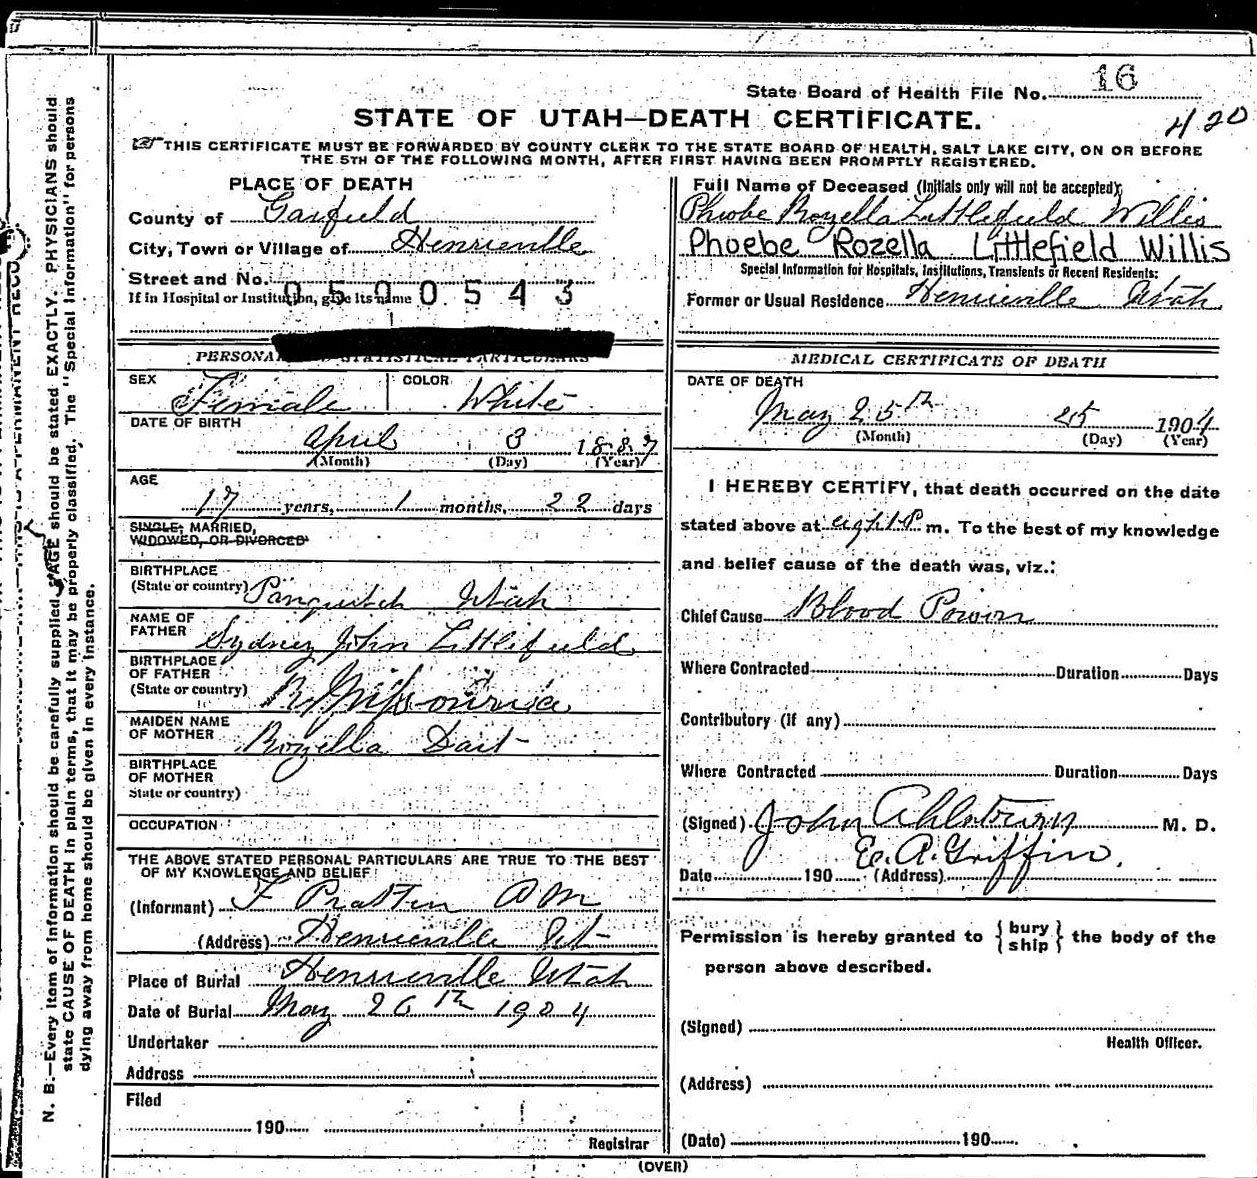 State Board of Health File No. 16
420
STATE OF UTAH—DEATH CERTIFICATE.
THIS CERTIFICATE MUST BE FORWARDED BY COUNTY CLERK TO THE STATE BOARD OF HEALTH, SALT LAKE CITY, ON OR BEFORE
THE 5TH OF THE FOLLOWING MONTH, AFTER FIRST HAVING BEEN PROMPTLY REGISTERED.
N. B.—Every item of information should be carefully supplied. AGE should be stated EXACTLY. PHYSICIANS should
state CAUSE OF DEATH in plain terms, that it may be properly classified. The "Special Information" for persons
dying away from home should be given in every instance.
PLACE OF DEATH
County of Garfield
City, Town or Village of Henrieville
Street and No.
If in Hospital or Institution, give its name
0500543
PERSONAL STATISTICAL PARTICULARS
SEX Female COLOR White
DATE OF BIRTH
April 3 1887
(Month) (Day) (Year)
AGE
17 years, 1 months, 22 days
SINGLE, MARRIED,
WIDOWED, OR DIVORCED
BIRTHPLACE
(State or country) Panguitch Utah
NAME OF
FATHER Sydney John Littlefield
BIRTHPLACE
OF FATHER
(State or country)
MAIDEN NAME
OF MOTHER Rozella Dart
BIRTHPLACE
OF MOTHER
State or country)
OCCUPATION
THE ABOVE STATED PERSONAL PARTICULARS ARE TRUE TO THE BEST
OF MY KNOWLEDGE AND BELIEF
(Informant) F Pratten
(Address) Henrieville Ut
Place of Burial Henrieville Utah
Date of Burial May 26th 1904
Undertaker
Address
Filed
190
Registrar
Full Name of Deceased (Initials only will not be accepted)
Phoebe Rozella Littlefield Willis
Phoebe Rozella Littlefield Willis
Special Information for Hospitals, Institutions, Transients or Recent Residents:
Former or Usual Residence Henrieville Utah
MEDICAL CERTIFICATE OF DEATH
DATE OF DEATH
May 25th 25 1904
(Month) (Day) (Year)
I HEREBY CERTIFY, that death occurred on the date
stated above at eight P m. To the best of my knowledge
and belief cause of the death was, viz.:
Chief Cause Blood Poison
Where Contracted Duration Days
Contributory (if any)
Where Contracted Duration Days
(Signed) John Ahlstrom M. D.
E. A. Griffin.
Date 190 (Address)
Permission is hereby granted to {bury
ship} the body of the
person above described.
(Signed)
Health Officer.
(Address)
(Date) 190
(OVER)